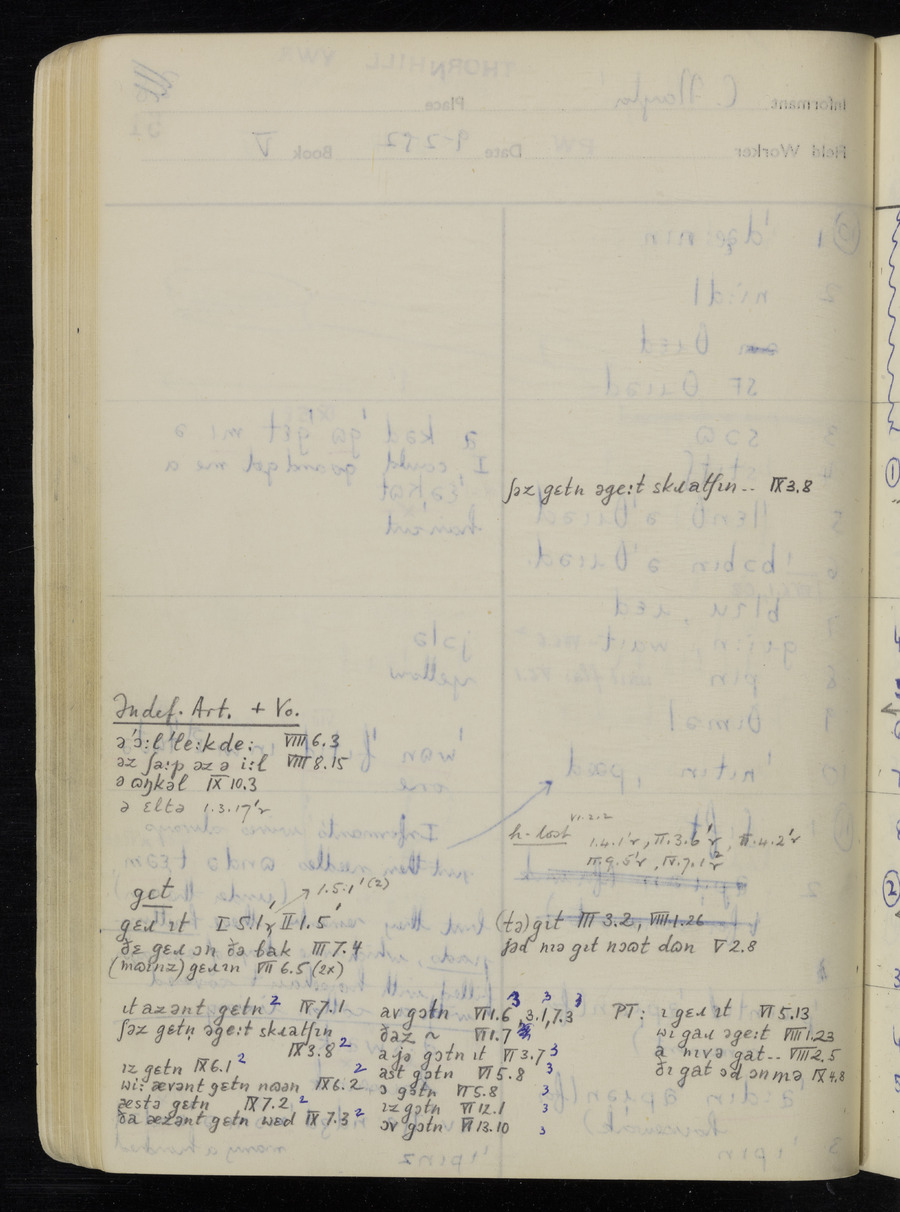 ʃəz gɛtn əge:t skɹatʃɪn .. IX 3.8
Indef. Art. + Vo.
ə'ɔ:l'le:kde: VIII 6.3
əz ʃa:p əz ə i:l VIII 8.15
ə ɷŋkəl IX 10.3
ə ɛltə 1.3.17'r
h-lost VI.2.2
I.4.1'r, II.3.6'r, III.4.2'r
III.9.5'r, IV.7.1'r
get
→ 1.5.1' (2)
gɛɹ ɪt I 5.1'r, II 1.5'
ðɛ gɛɹ ɔn ðə bak III 7.4
(mɷɪnz) gɛɹɪn VII 6.5 (2x)
(tə) gɪt III 3.2, VIII.1.26
ʃəd nɪə gɪt nɔɷt dɷn V 2.8
ɪt azənt gɛtn 2 IV 7.1
ʃəz gɛtn əge:t skɹatʃɪn
IX 3.8 2
ɪz gɛtn IX 6.1 2
wi: ævənt gɛtn nɷən IX 6.2 2
æstə gɛtn IX 7.2 2
ða æzənt gɛtn wɛd IX 7.3 2
av gɔtn VI 1.6 3, 3.1 3, 7.3 3
ðaz ~ VI 1.7
a jə gɔtn ɪt VI 3.7 3
ast gɔtn VI 5.8 3
ɔ gɔtn VI 5.8 3
ɪz gɔtn VI 12.1 3
ɔv gɔtn VI 13.10 3
PT: ɪ gɛɹ ɪt VI 5.13
wɪ gaɹ əge:t VIII 1.23
a nɪvə gat .. VIII 2.5
ðɪ gat ɔd ɔn mə IX 4.8